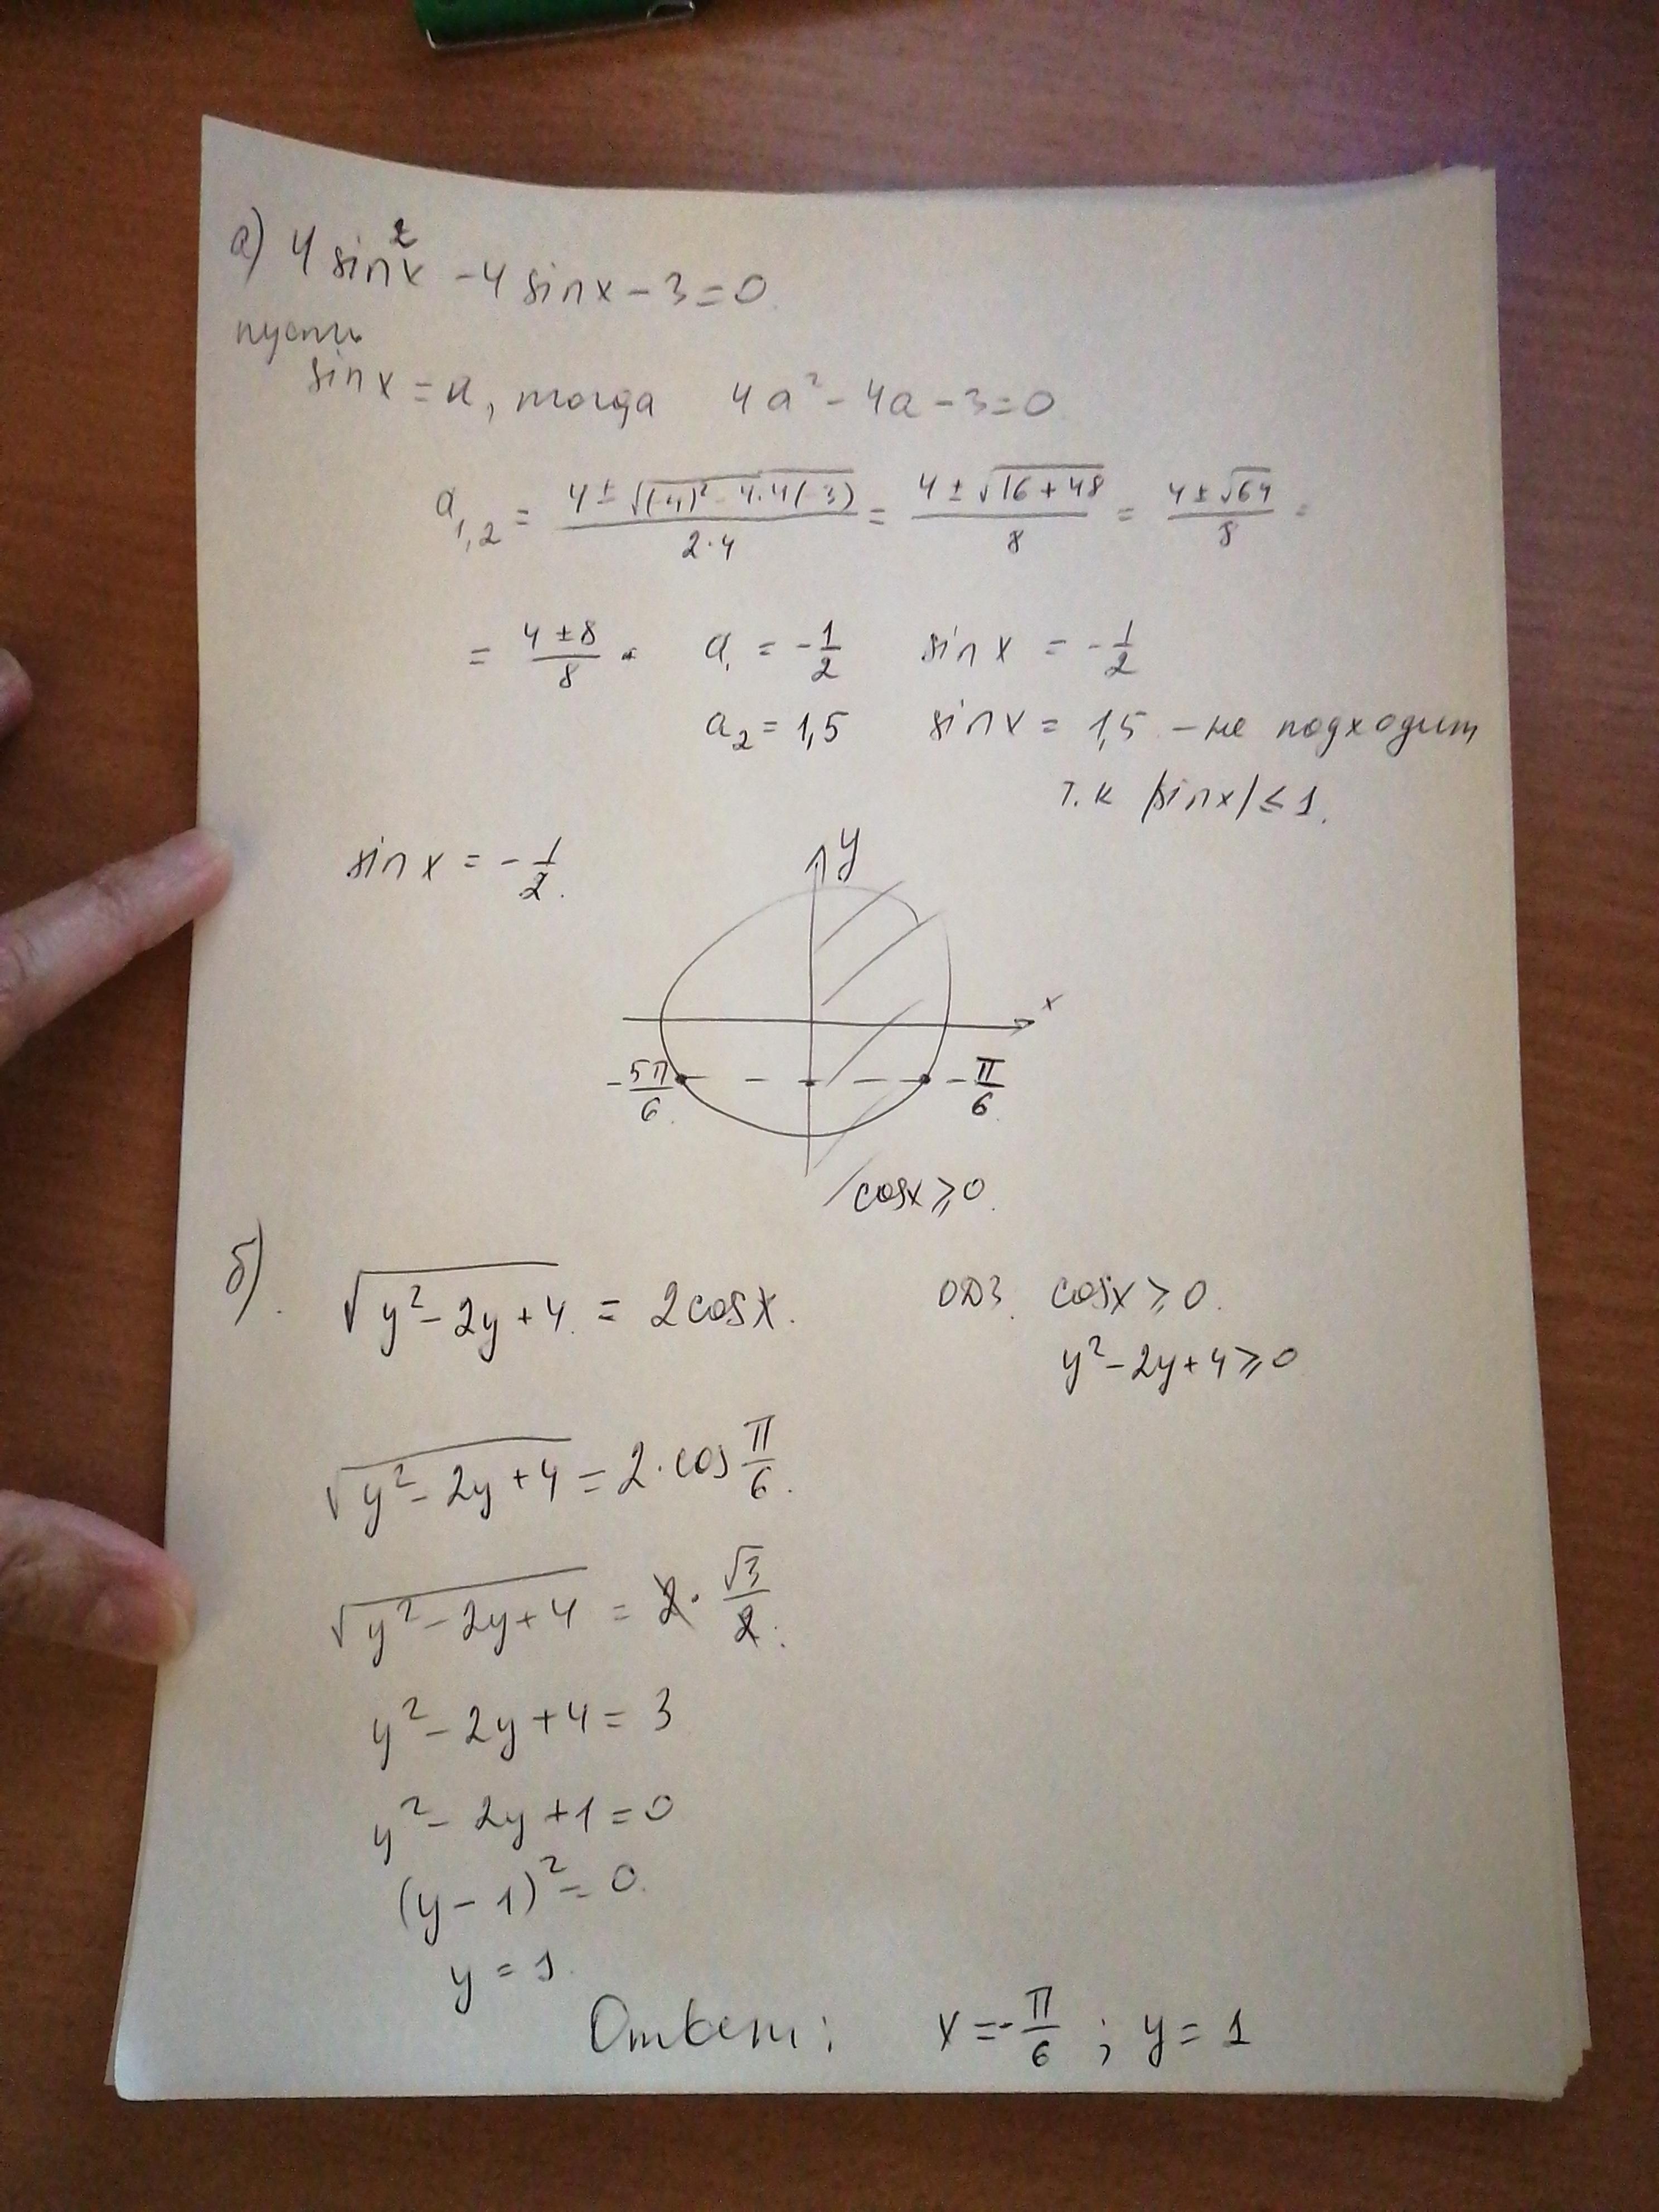 а) 4 sin²x - 4 sin x - 3 = 0.
пусть
sin x = a, тогда 4a² - 4a - 3 = 0
a₁,₂ = (4 ± √((-4)² - 4·4(-3)))/(2·4) = (4 ± √(16 + 48))/8 = (4 ± √64)/8 =
= (4 ± 8)/8 . a₁ = -1/2 sin x = -1/2
a₂ = 1,5 sin x = 1,5 - не подходит
т.к |sin x| ≤ 1.
sin x = -1/2.
y
x
-5π/6 -π/6
cos x ≥ 0.
б). √(y² - 2y + 4) = 2 cos x. ОДЗ. cos x ≥ 0.
y² - 2y + 4 ≥ 0
√(y² - 2y + 4) = 2·cos π/6.
√(y² - 2y + 4) = 2·√3/2.
y² - 2y + 4 = 3
y² - 2y + 1 = 0
(y - 1)² = 0.
y = 1.
Ответ: x = -π/6 ; y = 1